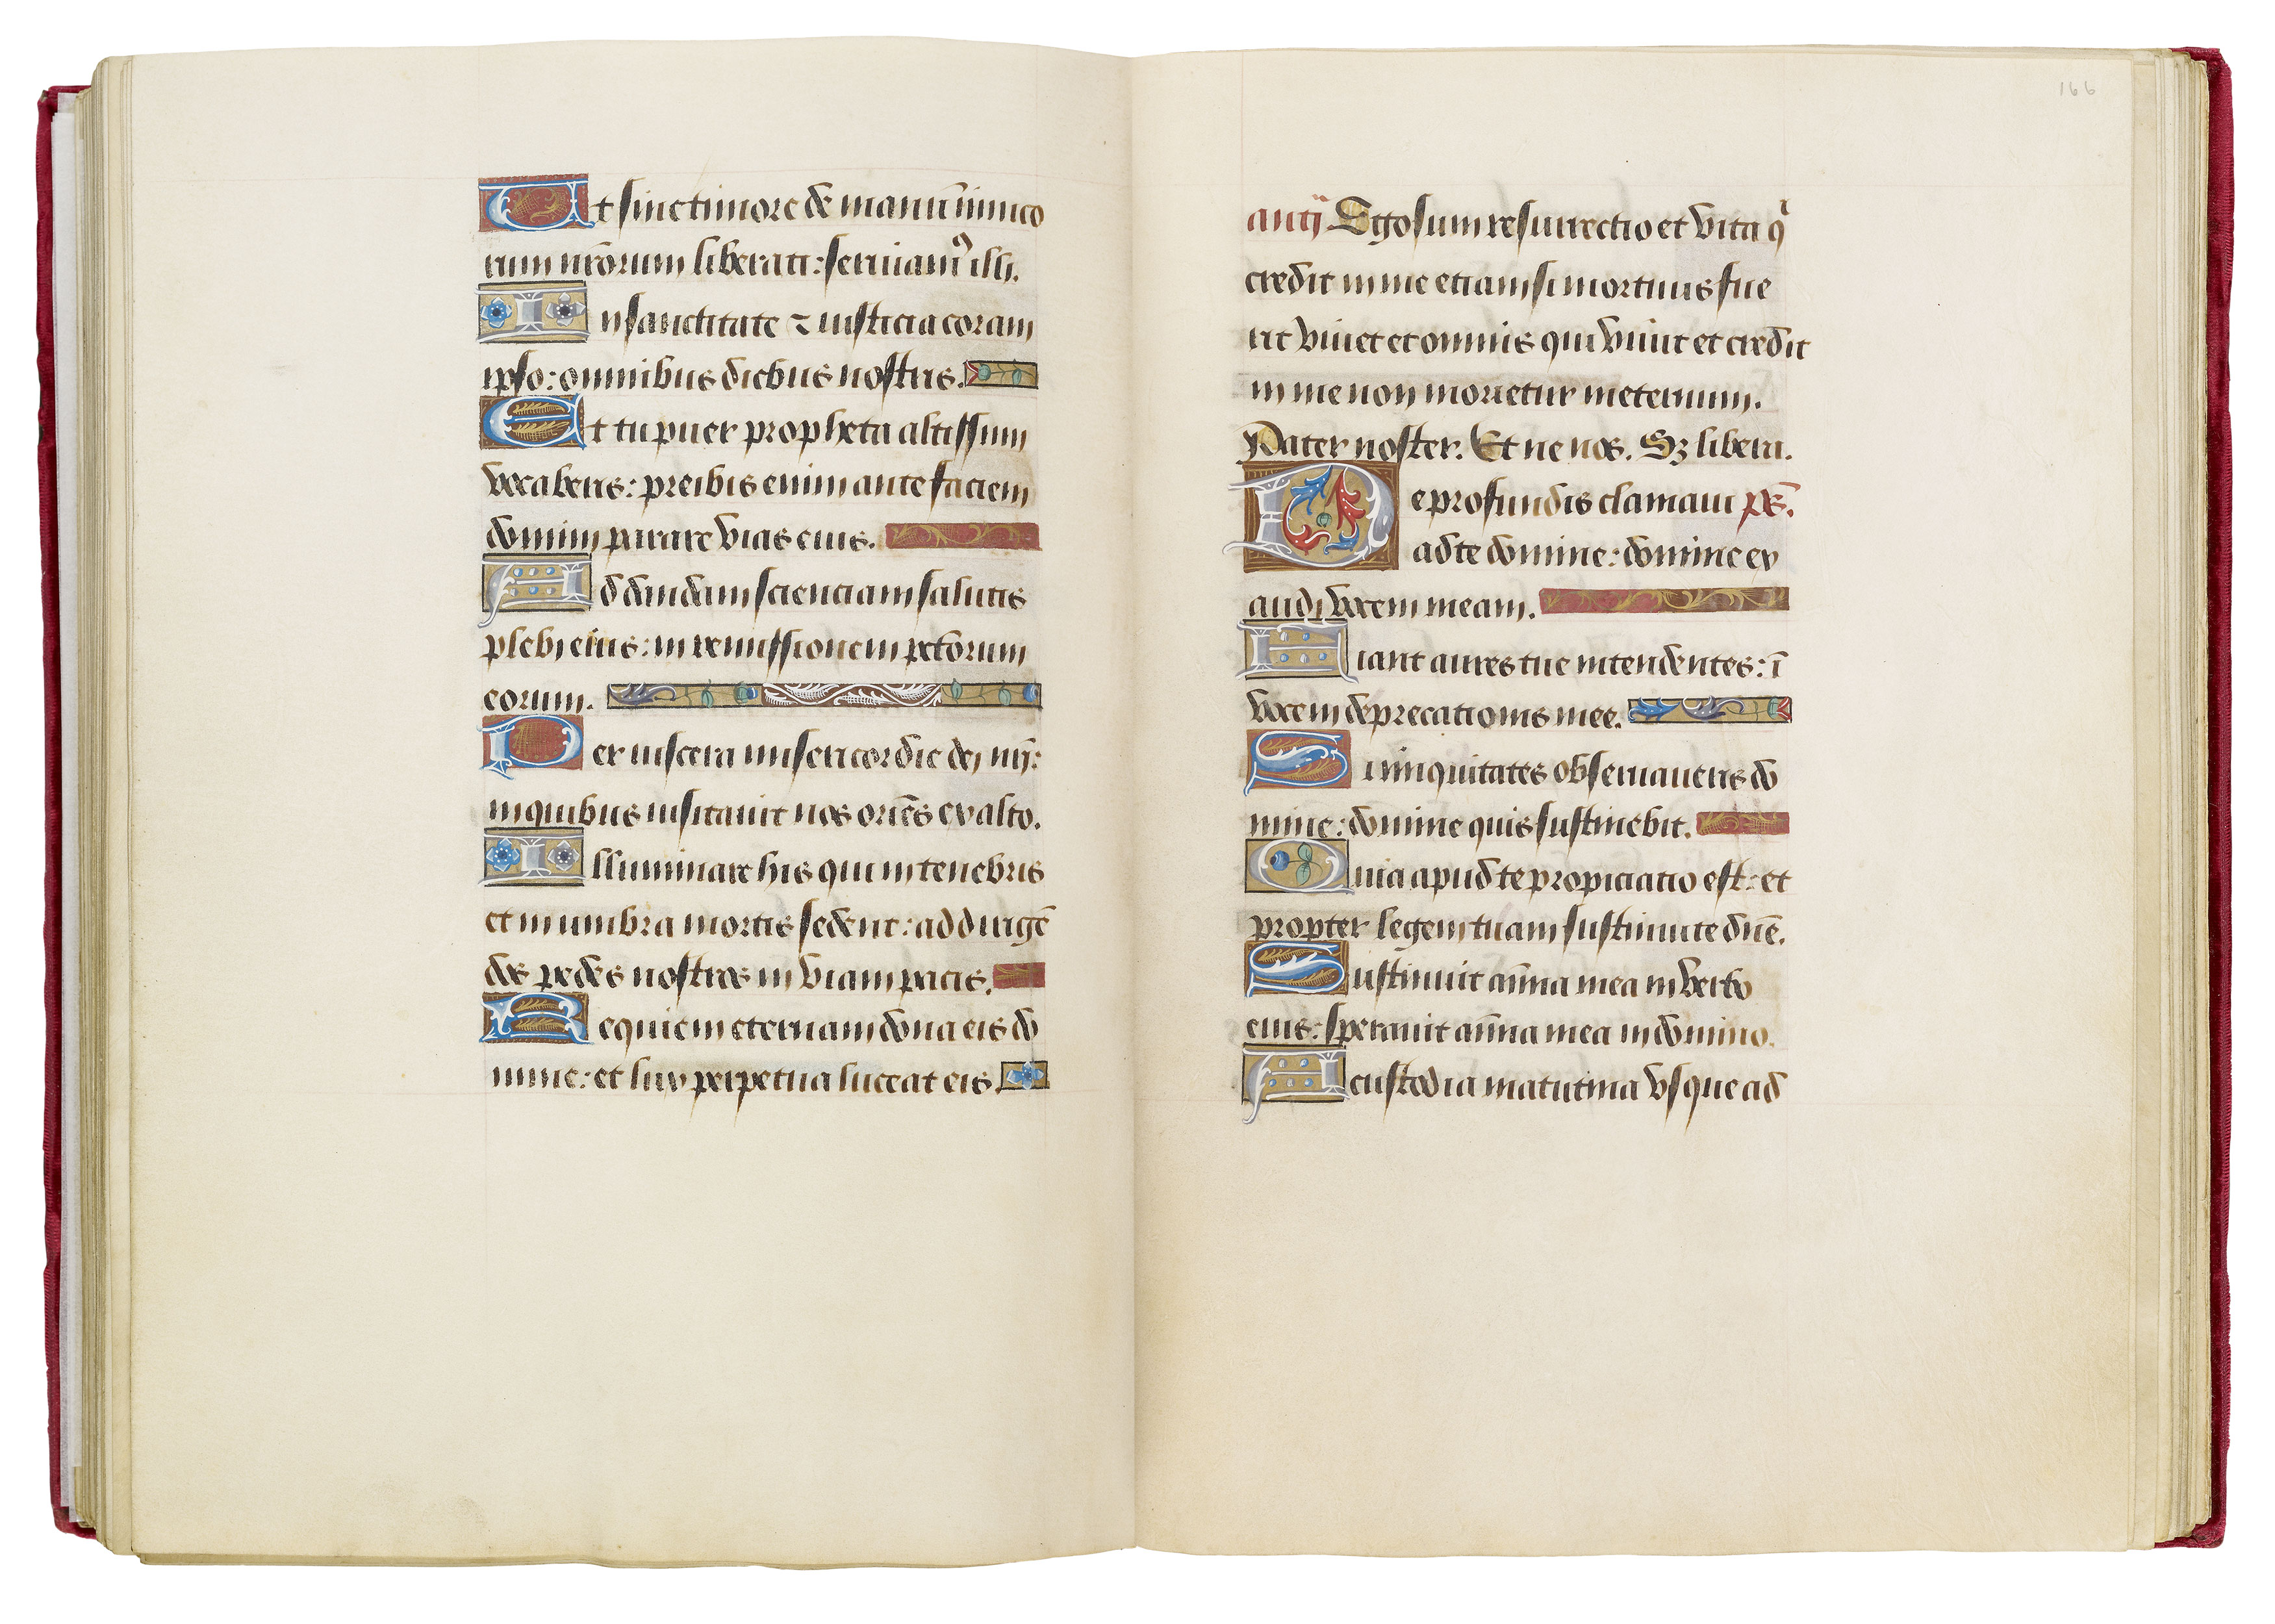 Ut sine timore de manu inimico
rum nr̄orum liberati: seruiamꝰ illi.
In sanctitate ⁊ iusticia coram
ipso: omnibus diebus nostris.
Et tu puer propheta altissimi
vocaberis: preibis enim ante faciem
domini parare vias eius.
Ad dandam scienciam salutis
plebi eius: in remissionem pctōrum
eorum.
Per uiscera misericordie dei nr̄i:
in quibus uisitauit nos oriēs ex alto.
Illuminare his qui in tenebris
et in umbra mortis sedent: ad dirigē
dos pedes nostros in viam pacis.
Requiem eternam dona eis do
mine: et lux perpetua luceat eis.
166
antī Ego sum resurrectio et vita q
credit in me etiam si mortuus fue
rit viuet et omnis qui viuit et credit
in me non morietur in eternum.
Pater noster. Et ne nos. Sꝫ libera.
De profundis clamaui ps̄.
ad te domine: domine ex
audi vocem meam.
Fiant aures tue intendentes: ī
vocem deprecationis mee.
Si iniquitates obseruaueris do
mine: domine quis sustinebit.
Quia apud te propiciatio est: et
propter legem tuam sustinui te dn̄e.
Sustinuit aīma mea in verbo
eius: sperauit aīma mea in domino.
A custodia matutina vsque ad